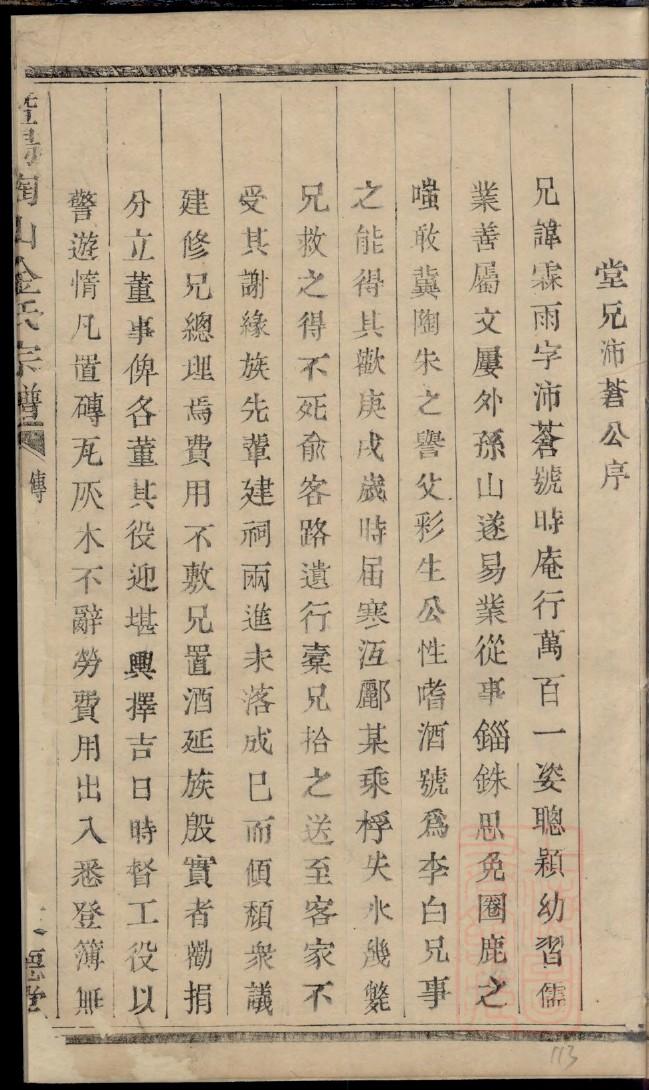 堂兄沛蒼公序
兄諱霖雨字沛蒼號時庵行萬百一姿聰穎幼習儒
業善屬文屢外孫山遂易業從事錙銖思免圈鹿之
嗤敢冀陶朱之譽父彩生公性嗜酒號爲李白兄事
之能得其歡庚戌歲時届寒冱酈某乘桴失水幾斃
兄救之得不死俞客路遺行橐兄拾之送至客家不
受其謝緣族先輩建祠兩進未落成巳而傾頹衆議
建修兄總理焉費用不敷兄置酒延族殷實者勸捐
分立董事俾各董其役迎堪輿擇吉日時督工役以
警遊惰凡置磚瓦灰木不辭勞費用出入悉登簿無
山金氏宗譜
傳
德堂
113